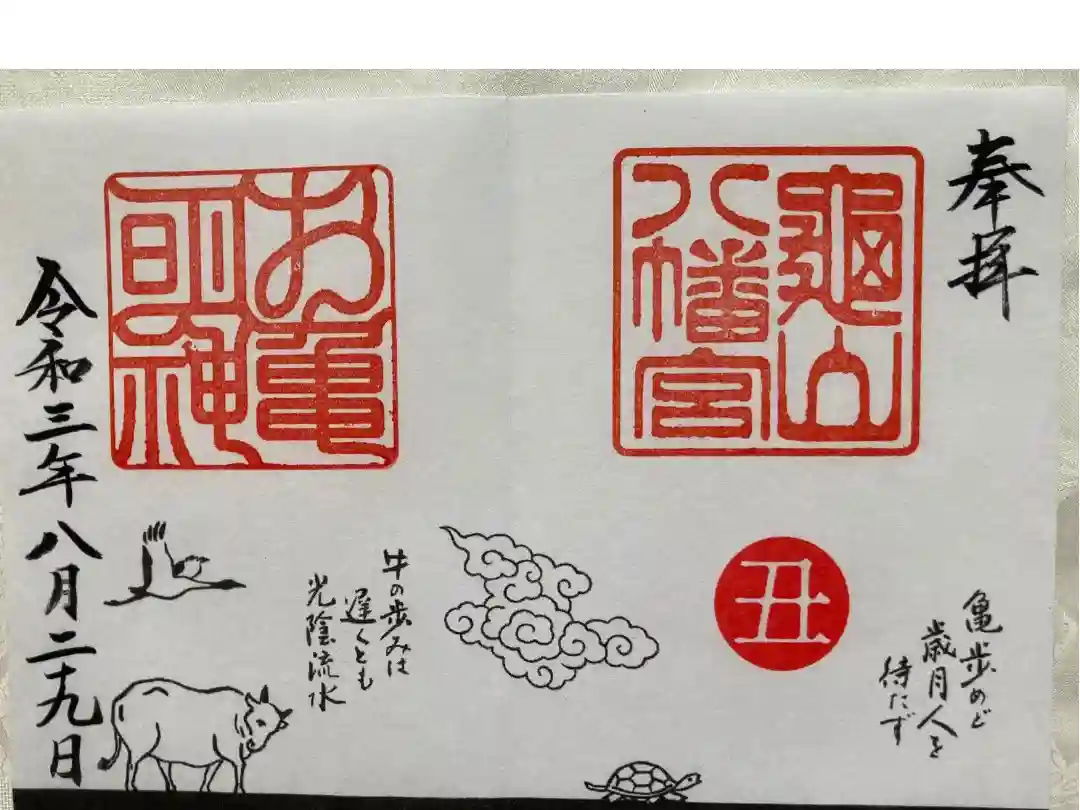 奉拝
亀山
八幡宮
丑
亀歩めど
歳月人を
待たず
お亀
明神
牛の歩みは
遅くとも
光陰流水
令和三年八月二十九日